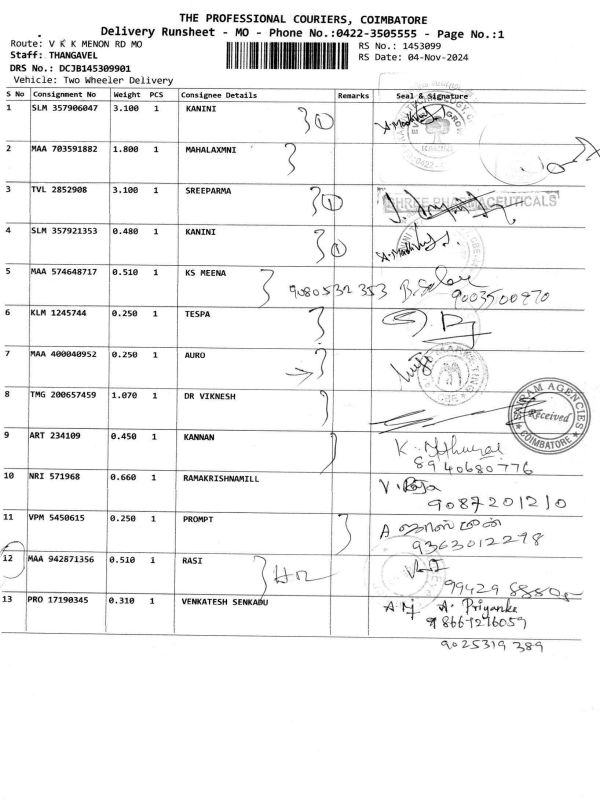 THE PROFESSIONAL COURIERS, COIMBATORE
Delivery Runsheet - MO - Phone No.:0422-3505555 - Page No.:1
Route: V K K MENON RD MO
RS No.: 1453099
Staff: THANGAVEL
RS Date: 04-Nov-2024
DRS No.: DCJB145309901
Vehicle: Two Wheeler Delivery
S No Consignment No Weight PCS Consignee Details Remarks Seal & Signature
1 SLM 357906047 3.100 1 KANINI 1
2 MAA 703591882 1.800 1 MAHALAXMNI
3 TVL 2852908 3.100 1 SREEPARMA 1 SHREE PHARMACEUTICALS
4 SLM 357921353 0.480 1 KANINI 1
5 MAA 574648717 0.510 1 KS MEENA
9080532353 9003500970
6 KLM 1245744 0.250 1 TESPA
7 MAA 400040952 0.250 1 AURO
8 TMG 200657459 1.070 1 DR VIKNESH
SRIRAM AGENCIES
Received
COIMBATORE
9 ART 234109 0.450 1 KANNAN
8940680776
10 NRI 571968 0.660 1 RAMAKRISHNAMILL V. Raja
9087201210
11 VPM 5450615 0.250 1 PROMPT A
9363012278
12 MAA 942871356 0.510 1 RASI
13 PRO 17190345 0.310 1 VENKATESH SENKADU A. Priyanka
9025319389